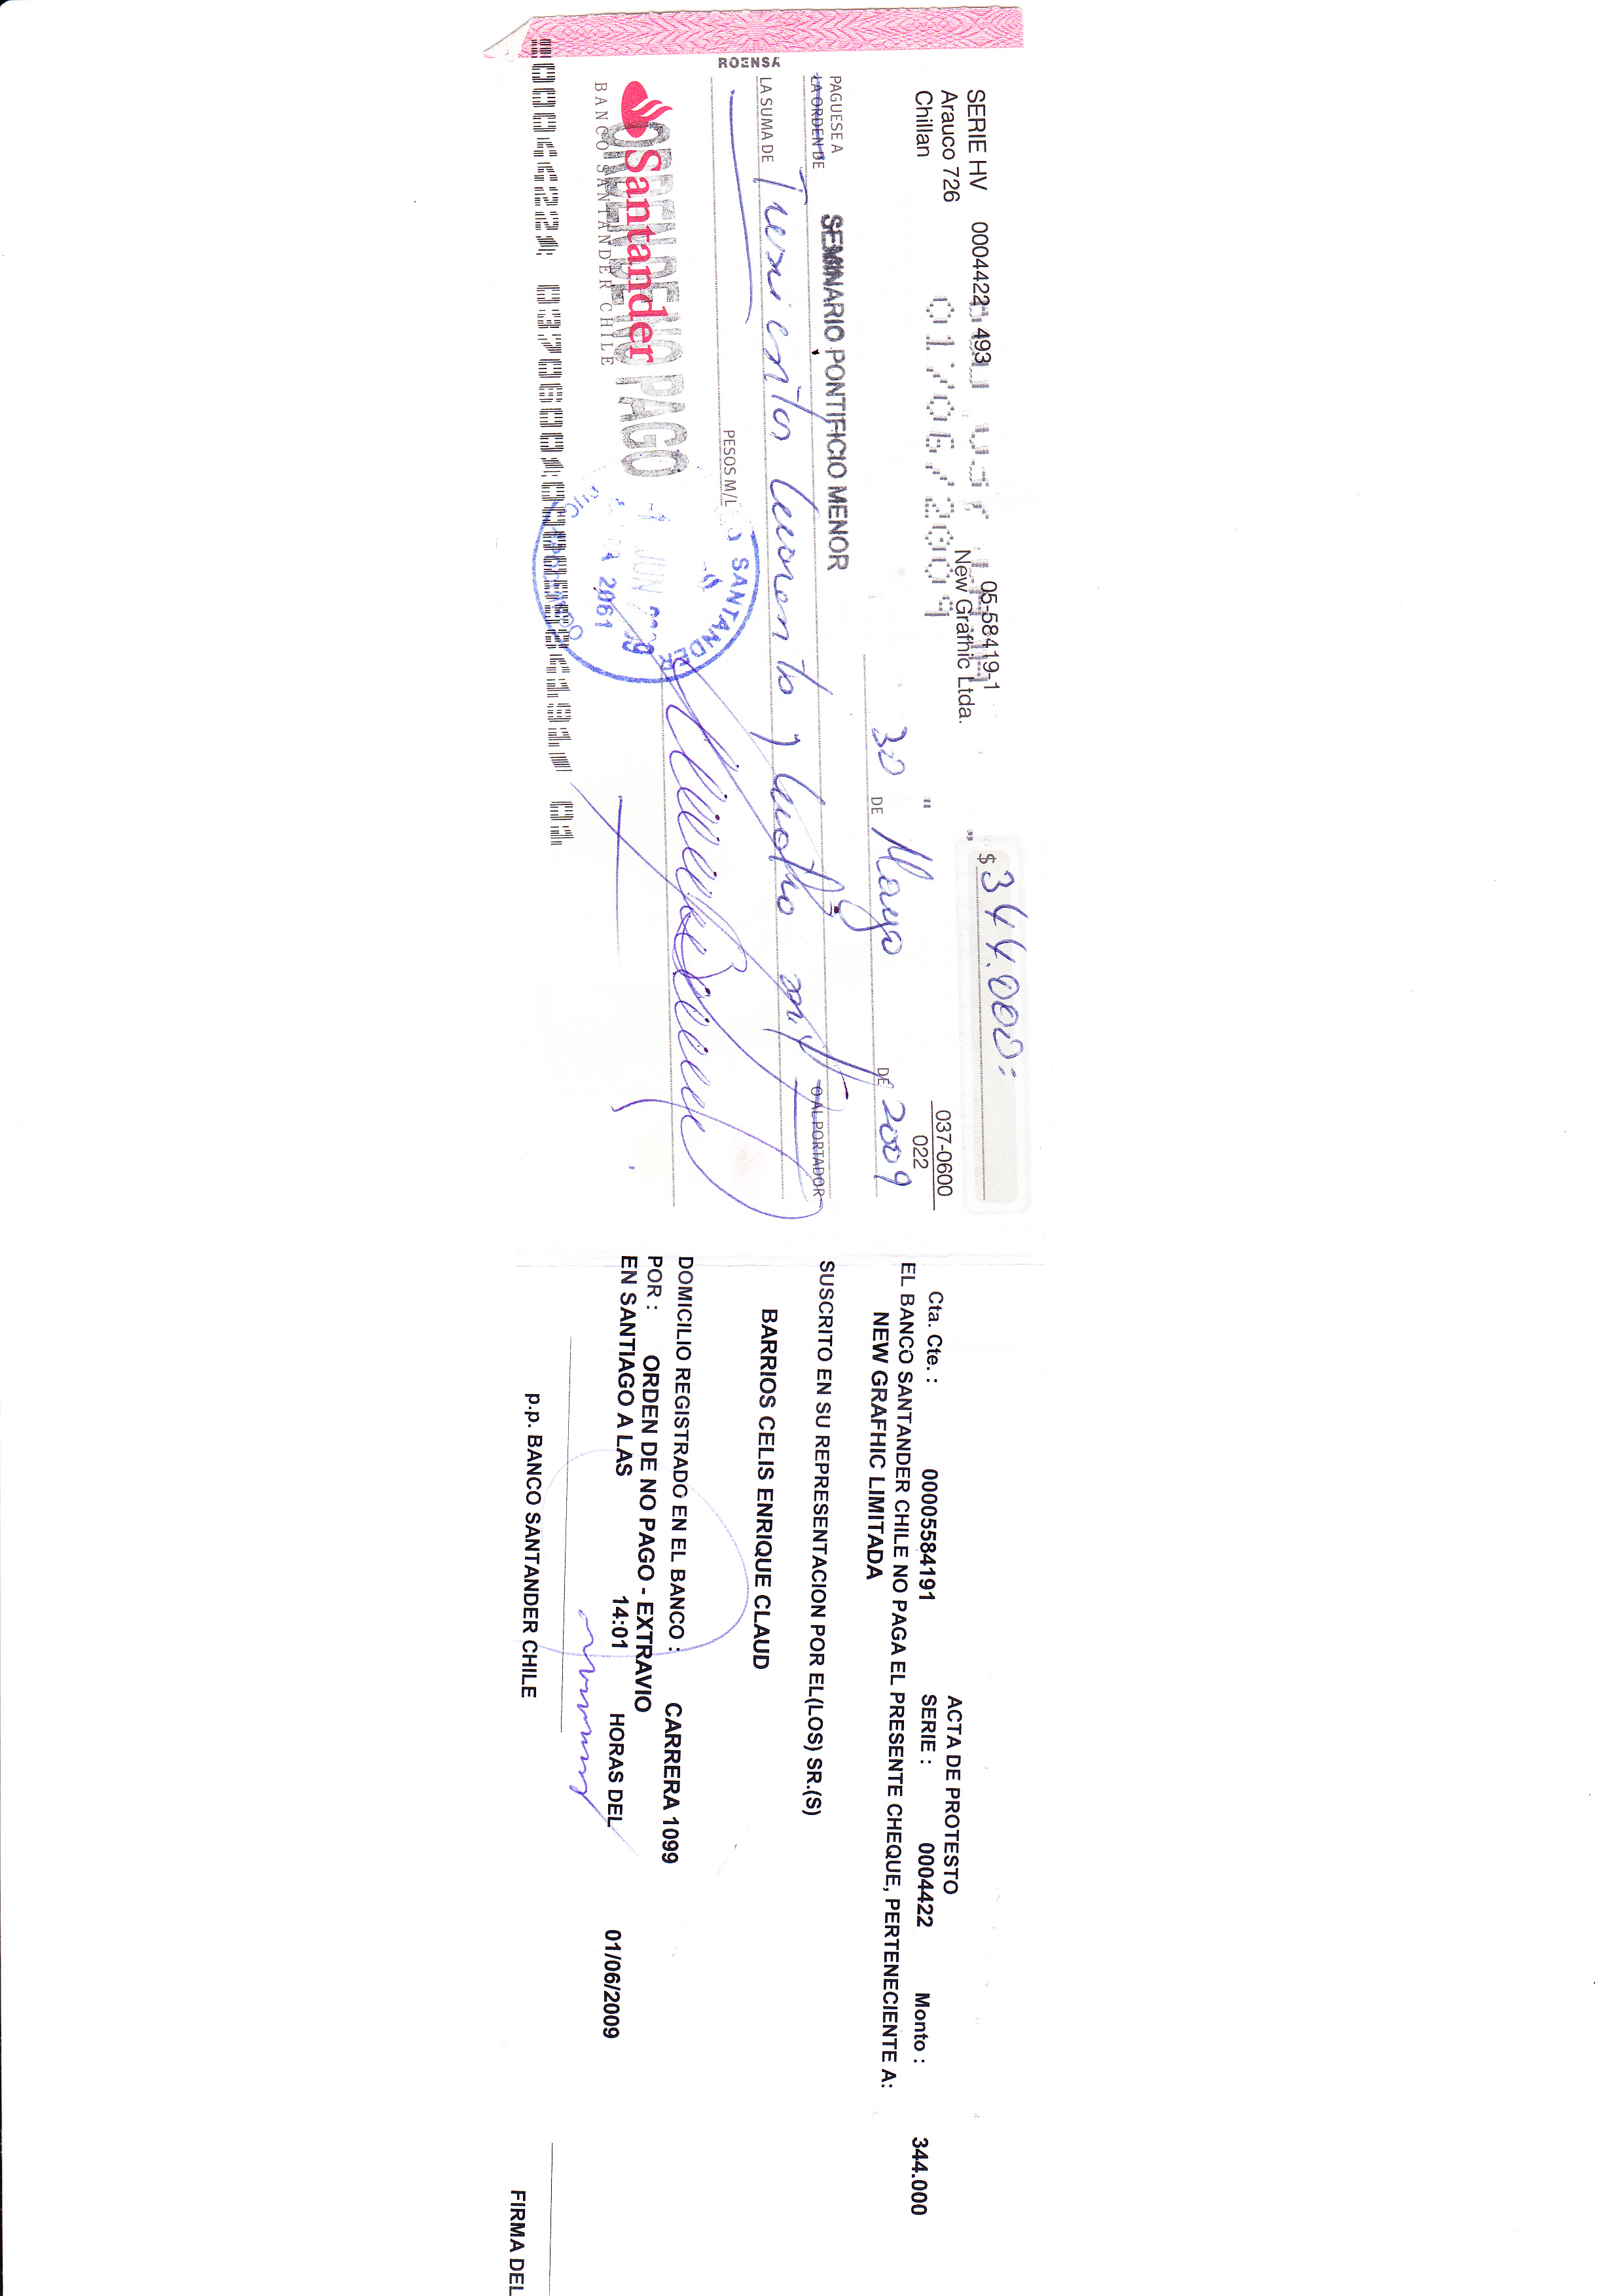 SERIE HV 0004422 493 05-58419-1
Arauco 726 New Grafhic Ltda.
Chillan
01/06/2009
$ 344.000.=
037-0600
022
30 DE Mayo DE 2009
PAGUESE A
LA ORDEN DE SEMINARIO PONTIFICIO MENOR O AL PORTADOR
LA SUMA DE Trescientos cuarenta y cuatro mil
PESOS M/L
ROENSA
Santander
BANCO SANTANDER CHILE
ORDEN DE NO PAGO
SANTANDER
1 JUN 2009
2061
ACTA DE PROTESTO
Cta. Cte. : 000055584191 SERIE : 0004422 Monto : 344.000
EL BANCO SANTANDER CHILE NO PAGA EL PRESENTE CHEQUE, PERTENECIENTE A:
NEW GRAFHIC LIMITADA
SUSCRITO EN SU REPRESENTACION POR EL(LOS) SR.(S)
BARRIOS CELIS ENRIQUE CLAUD
DOMICILIO REGISTRADO EN EL BANCO : CARRERA 1099
POR : ORDEN DE NO PAGO - EXTRAVIO
EN SANTIAGO A LAS 14:01 HORAS DEL 01/06/2009
p.p. BANCO SANTANDER CHILE
FIRMA DEL